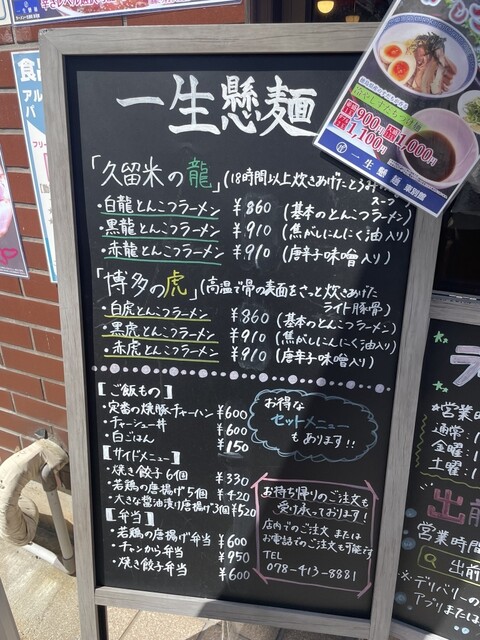 一生懸麺
「久留米の龍」(18時間以上炊きあげたとろみ
スープ
・白龍とんこつラーメン ¥860 (基本のとんこつラーメン)
・黒龍とんこつラーメン ¥910 (焦がしにんにく油入り)
・赤龍とんこつラーメン ¥910 (唐辛子味噌入り)
「博多の虎」(高温で骨の表面をさっと炊きあげた
ライト豚骨)
・白虎とんこつラーメン ¥860 (基本のとんこつラーメン)
・黒虎とんこつラーメン ¥910 (焦がしにんにく油入り)
・赤虎とんこつラーメン ¥910 (唐辛子味噌入り)
【ご飯もの】
・定番の焼豚チャーハン ¥600
・チャーシュー丼 ¥600
・白ごはん ¥150
【サイドメニュー】
・焼き餃子6個 ¥330
・若鶏の唐揚げ5個 ¥420
・大きな醤油漬り唐揚げ3個 ¥520
【弁当】
・若鶏の唐揚げ弁当 ¥600
・チキンから弁当 ¥950
・焼き餃子弁当 ¥600
お得な
セットメニュー
もあります!!
お持ち帰りのご注文も
受け承っております!
店内でのご注文または
お電話でのご注文も可能です
TEL
078-413-8881
900円
1,000円
1,100円
一生懸麺
営業時
通常:1
金曜:1
土曜:1
出前
営業時間
出前
※デリバリーの
アプリまたは